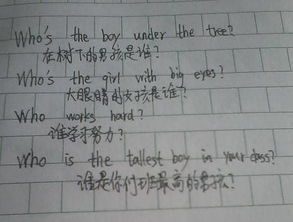 Who's the boy under the tree?
在树下的男孩是谁?
Who's the girl with big eyes?
大眼睛的女孩是谁?
Who works hard?
谁学习努力?
Who is the tallest boy in your class?
谁是你们班最高的男孩?